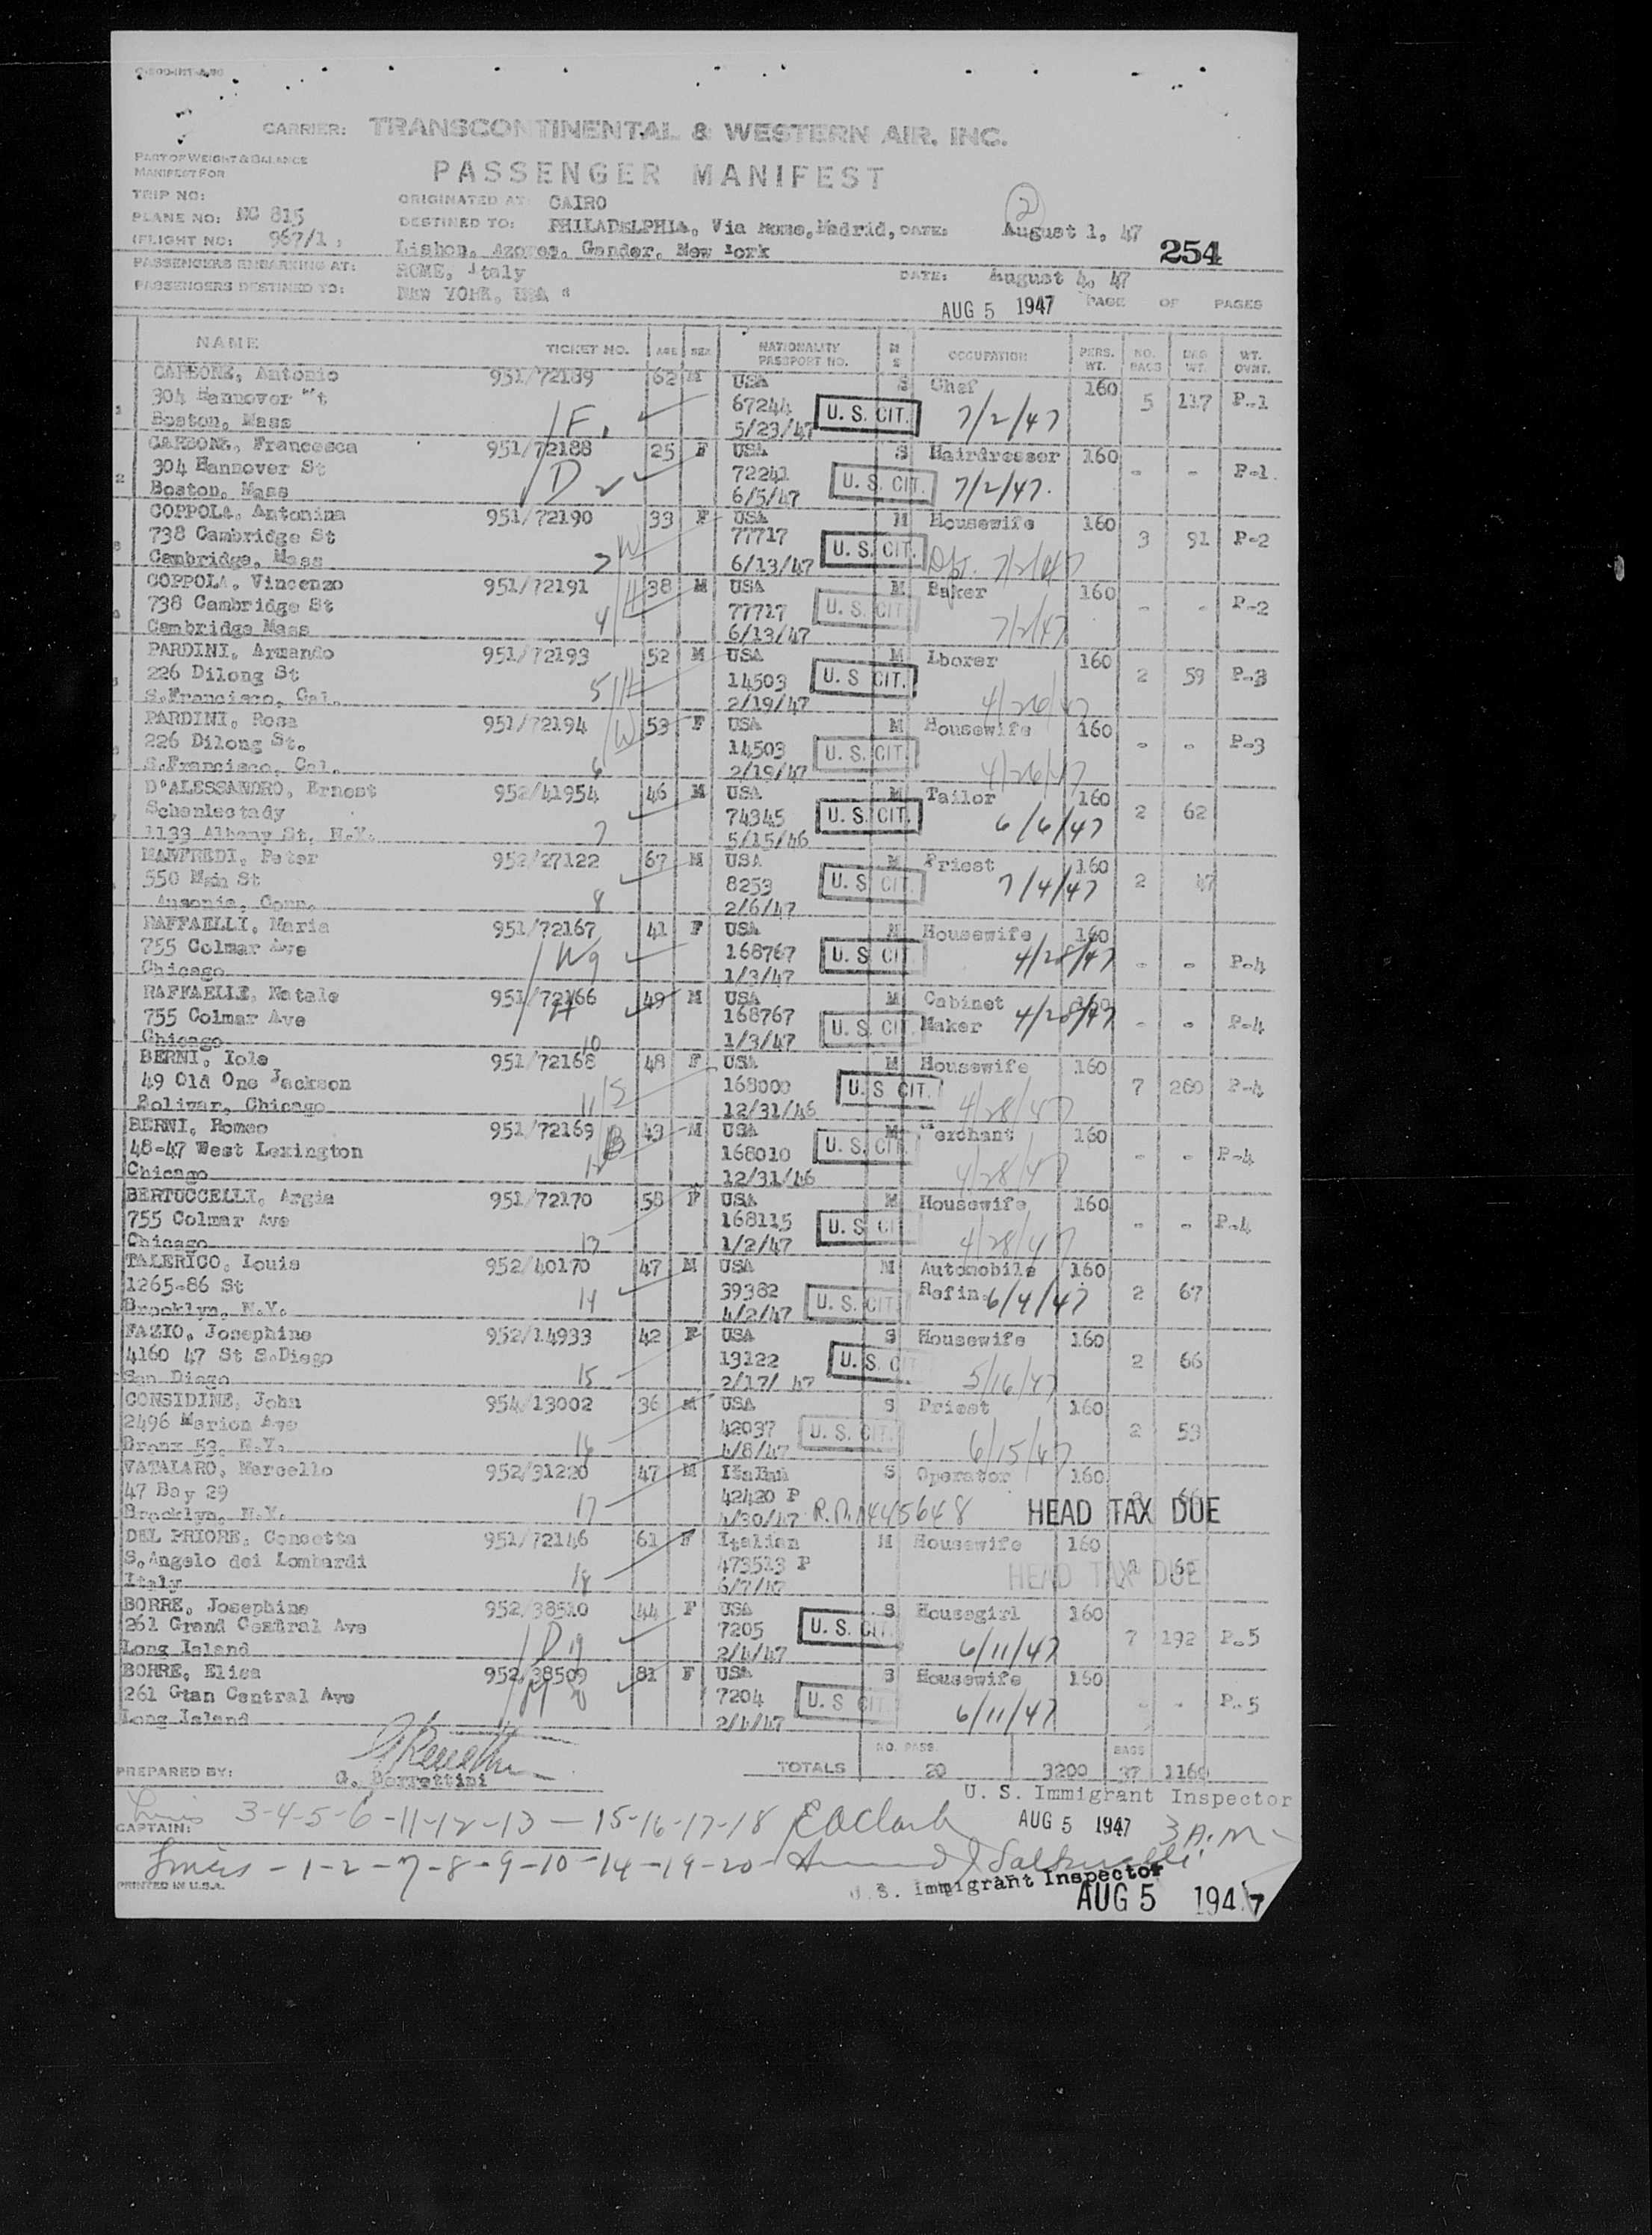 CARRIER: TRANSCONTINENTAL & WESTERN AIR. INC.
PART OF WEIGHT & BALANCE
MANIFEST FOR
PASSENGER MANIFEST
TRIP NO:
ORIGINATED AT: CAIRO
2
PLANE NO: NC 815
DESTINED TO: PHILADELPHIA, Via Rome, Madrid, DATE: August 1, 47
FLIGHT NO: 967/1
Lisbon, Azores, Gander, New York
254
PASSENGERS EMBARKING AT: ROME, Italy DATE: August 4, 47
PASSENGERS DESTINED TO: NEW YORK, USA
AUG 5 1947 PAGE OF PAGES
NAME TICKET NO. AGE SEX NATIONALITY PASSPORT NO. M S OCCUPATION PERS. WT. NO. BAGS BAG WT. WT. OVNT.
CARBONE, Antonio 951/72189 62 M USA S Chef 160
304 Hannover St 67244 U. S. CIT. 7/2/47 5 117 P-1
1 Boston, Mass 5/23/47
CARBONE, Francesca 951/72188 25 F USA S Hairdresser 160
304 Hannover St 72241 U. S. CIT. 7/2/47. - - P-1
2 Boston, Mass D 2 6/5/47
COPPOLA, Antonina 951/72190 33 F USA M Housewife 160
738 Cambridge St W 77717 U. S. CIT. 7/2/47 3 91 P-2
Cambridge, Mass 6/13/47
COPPOLA, Vincenzo 951/72191 38 M USA M Baker 160
738 Cambridge St H 77717 U. S. CIT. 7/2/47 - - P-2
Cambridge Mass 4 6/13/47
PARDINI, Armando 951/72193 52 M USA M Lborer 160
226 Dilong St 5 H 14503 U. S CIT. 2 59 P-3
S.Francisco, Cal. 2/19/47 4/26/47
PARDINI, Rosa 951/72194 53 F USA M Housewife 160
226 Dilong St. W 14503 U. S. CIT. - - P-3
S.Francisco, Cal. 6 2/19/47 4/26/47
D'ALESSANDRO, Ernest 952/41954 46 M USA M Tailor 160
Schenlectady 74345 U. S. CIT. 6/6/47 2 62
1133 Albany St, N.Y. 7 5/15/46
MANFREDI, Peter 952/27122 67 M USA M Priest 160
550 Main St 8253 U. S. CIT. 7/4/47 2 47
Ausonia, Conn. 8 2/6/47
RAFFAELLI, Maria 951/72167 41 F USA M Housewife 160
755 Colmar Ave W 9 168767 U. S CIT 4/28/47 - - P-4
Chicago 1/3/47
RAFFAELLI, Natale 951/72166 49 M USA M Cabinet 160
755 Colmar Ave H 168767 U. S. CIT. Maker 4/28/47 - - P-4
Chicago 10 1/3/47
BERNI, Iole 951/72168 48 F USA M Housewife 160
49 Old One Jackson 168000 U. S CIT. 7 280 P-4
Bolivar, Chicago 11 S 12/31/46 4/28/47
BERNI, Romeo 951/72169 43 M USA M Merchant 160
48-47 West Lexington B 168010 U. S. CIT - - P-4
Chicago 12 12/31/46 4/28/47
BERTUCCELLI, Argia 951/72170 58 F USA M Housewife 160
755 Colmar Ave 168115 U. S CI - - P-4
Chicago 13 1/2/47 4/28/47
TALERICO, Louis 952/40170 47 M USA M Automobile 160
1265-86 St 39382 Refin. 6/4/47 2 67
Brooklyn, N.Y. 14 4/2/47 U. S. CIT
FAZIO, Josephine 952/14933 42 F USA S Housewife 160
4160 47 St S.Diego 13122 U. S. C 2 66
San Diego 15 2/17/ 47 5/16/47
CONSIDINE, John 954/13002 36 M USA S Priest 160
2496 Marion Ave 42037 U. S. CIT. 2 53
Bronx 53, N.Y. 16 4/8/47 6/15/47
VATALARO, Marcello 952/31220 47 M S Operator 160
47 Bay 29 42420 P
Brooklyn, N.Y. 17 4/30/47 HEAD TAX DUE
DEL PRIORE, Concetta 951/72146 61 F Italian M Housewife 160
S.Angelo dei Lombardi 473513 P
Italy 18 6/7/47 HEAD TAX DUE
BORRE, Josephine 952/38510 44 F USA S Housegirl 160
261 Grand Central Ave D 19 7205 U. S. CIT. 7 192 P-5
Long Island 2/4/47 6/11/47
BORRE, Elisa 952/38509 81 F USA S Housewife 160
261 Gran Central Ave 7204 U. S CIT - - P-5
Long Island 2/4/47 6/11/47
NO. PASS. BAGS
PREPARED BY: TOTALS 20 3200 37 1160
U. S. Immigrant Inspector
3-4-5-6-11-12-13-15-16-17-18 AUG 5 1947 3 A.M.
CAPTAIN:
-1-2-7-8-9-10-14-19-20-
U. S. Immigrant Inspector
PRINTED IN U.S.A. AUG 5 1947